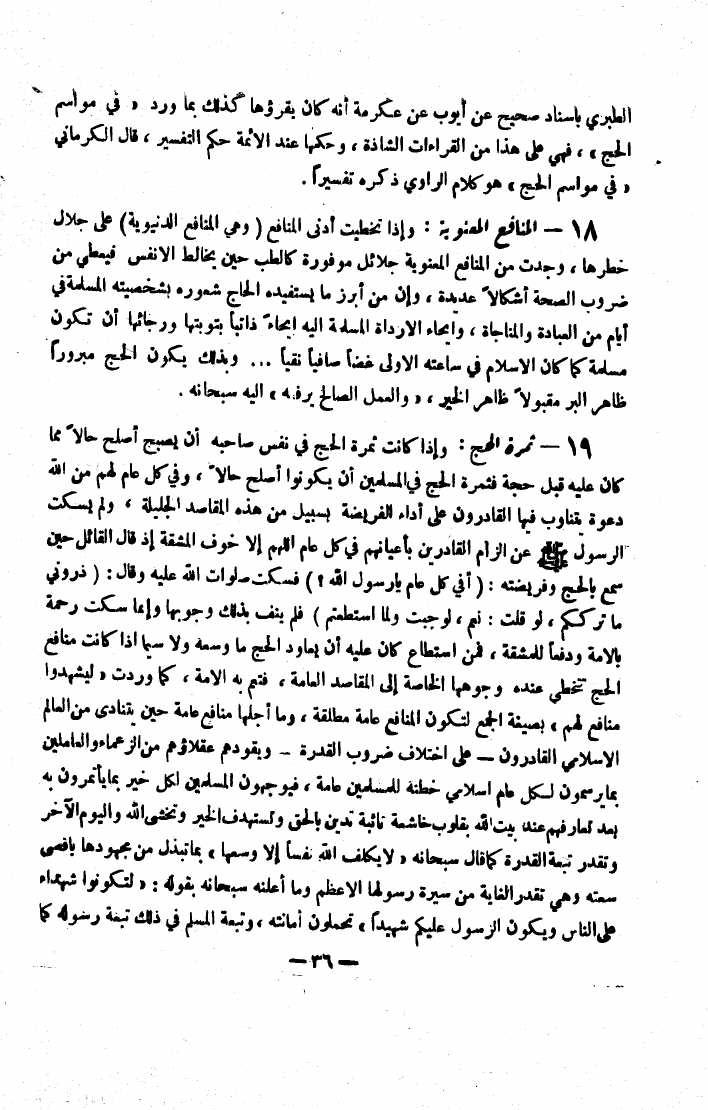 الطبري باسناد صحيح عن أيوب عن عكرمة أنه كان يقرؤها كذلك بما ورد « في مواسم
الحج » ، فهي على هذا من القراءات الشاذة ، وحكمها عند الأئمة حكم التفسير ، قال الكرماني
« في مواسم الحج » هو كلام الراوي ذكره تفسيراً .
١٨ — المنافع المعنوية : وإذا تخطيت أدنى المنافع ( وهي المنافع الدنيوية ) على جلال
خطرها ، وجدت من المنافع المعنوية جلائل موفورة كالطب حين يخالط الانفس فيعطي من
ضروب الصحة أشكالاً عديدة ، وإن من أبرز ما يستفيده الحاج شعوره بشخصيته المسلمة في
أيام من العبادة والمناجاة ، وايحاء الارداة المسلمة اليه ايحاءً ذاتياً بتوبتها ورجائها أن تكون
مسلمة كما كان الاسلام في ساعته الاولى غضاً صافياً نقياً ... وبذلك يكون الحج مبروراً
ظاهر البر مقبولاً ظاهر الخير ، « والعمل الصالح يرفعه » اليه سبحانه .
١٩ — ثمرة الحج : وإذا كانت ثمرة الحج في نفس صاحبه أن يصبح أصلح حالاً مما
كان عليه قبل حجة فثمرة الحج في المسلمين أن يكونوا أصلح حالاً ، وفي كل عام لهم من الله
دعوة يتناوب فيها القادرون على أداء الفريضة بسبيل من هذه المقاصد الجليلة ، ولم يسكت
الرسول ﷺ عن الزام القادرين بأعيانهم في كل عام اللهم إلا خوف المشقة إذ قال القائل حين
سمع بالحج وفريضته : ( أفي كل عام يارسول الله ؟ ) فسكت صلوات الله عليه وقال : ( ذروني
ما تركتكم ، لو قلت : نعم ، لوجبت ولما استطعتم ) فلم ينف بذلك وجوبها وإنما سكت رحمة
بالامة ودفعاً للمشقة ، فمن استطاع كان عليه أن يعاود الحج ما وسعه ولا سيما اذا كانت منافع
الحج تتخطي عنده وجوهها الخاصة إلى المقاصد العامة ، فتعم به الامة ، كما وردت « ليشهدوا
منافع لهم » بصيغة الجمع لتكون المنافع عامة مطلقة ، وما أجلها منافع عامة حين يتنادى من العالم
الاسلامي القادرون — على اختلاف ضروب القدرة — ويقودهم عقلاؤهم من الزعماء والعاملين
بما يرسمون لكل عام اسلامي خطته للمسلمين عامة ، فيوجهون المسلمين لكل خير بما يأتمرون به
بعد تعارفهم عند بيت الله بقلوب خاشعة تائبة تدين بالحق وتستهدف الخير وتخشى الله واليوم الآخر
وتقدر تبعة القدرة كما قال سبحانه « لا يكلف الله نفساً إلا وسعها » بما تبذل من مجهودها باقصى
سعته وهي تقدر الغاية من سيرة رسولها الاعظم وما أعلنه سبحانه بقوله : « لتكونوا شهداء
على الناس ويكون الرسول عليكم شهيداً » تحملون أمانته ، وتبعة المسلم في ذلك تبعة رسوله كما
— ٣٦ —